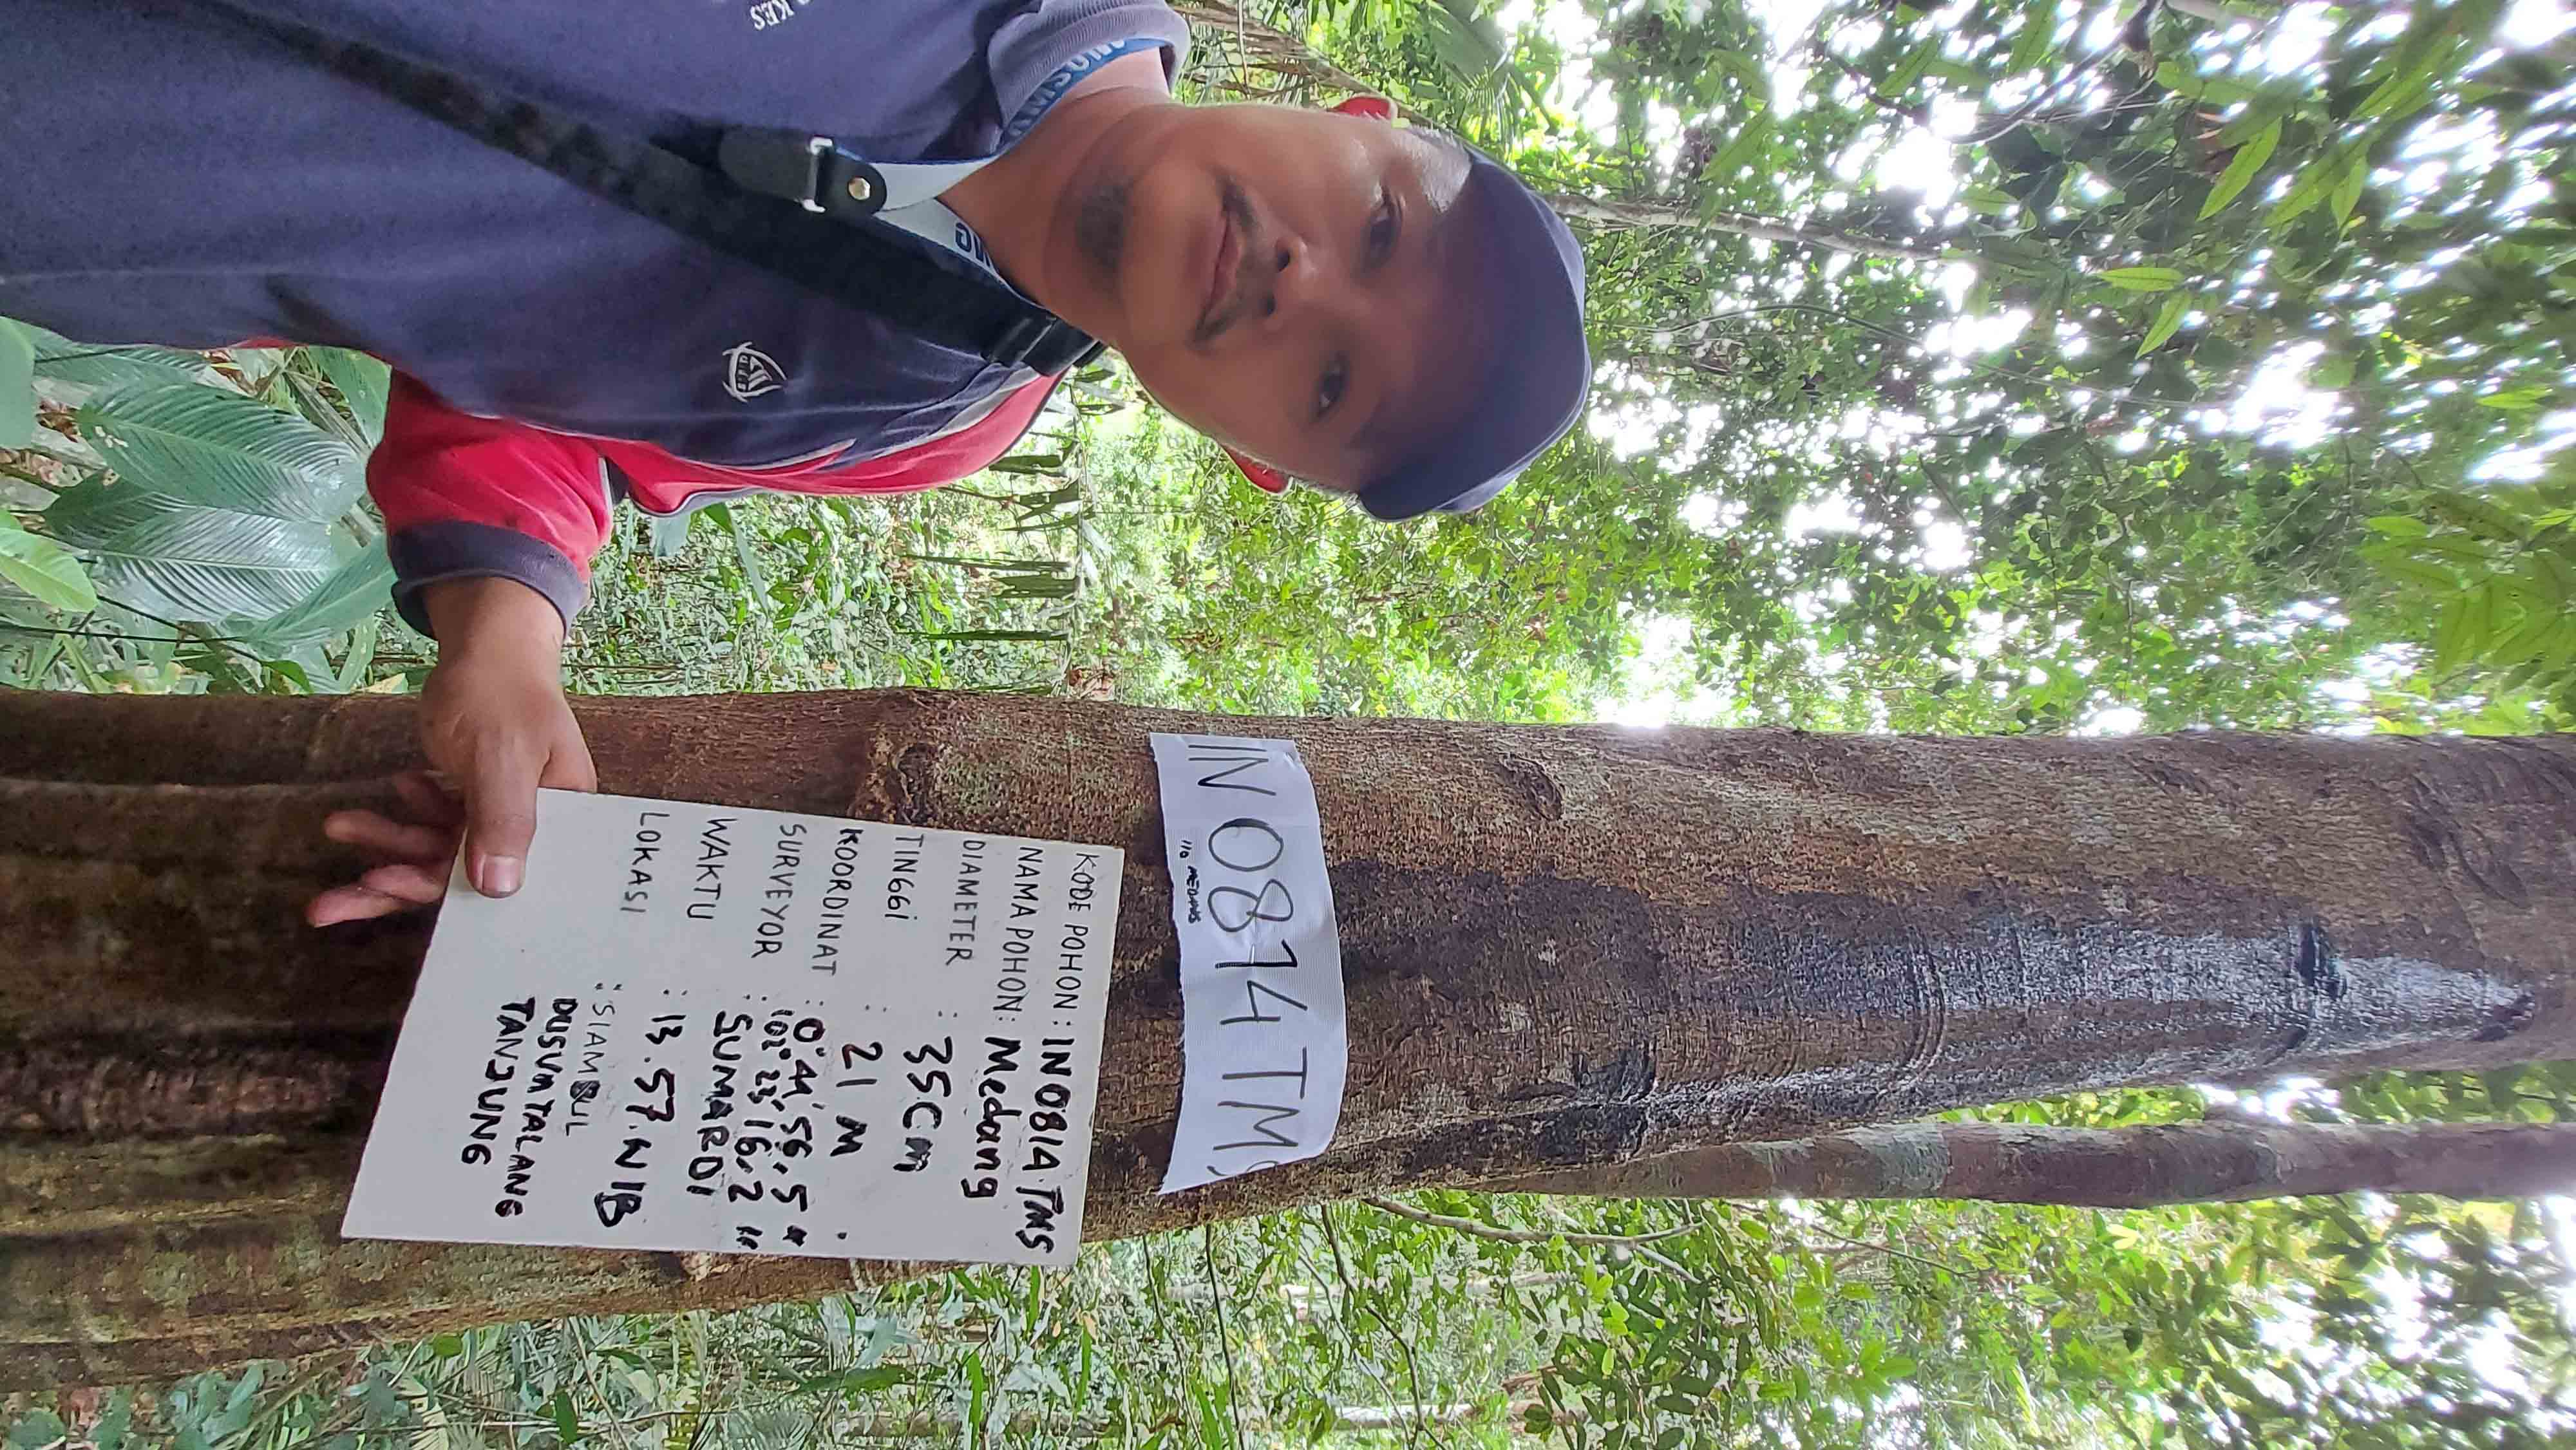 IN 0814 TMS
110 MEDANG
KODE POHON : IN 0814 TMS
NAMA POHON : Medang
DIAMETER : 35 Cm
TINGGI : 21 M
KOORDINAT : 0° 44' 56,5 "
102° 23' 16,2 "
SURVEYOR : SUMARDI
WAKTU : 13.57. WIB
LOKASI : SIAMBUL
DUSUN TALANG
TANJUNG